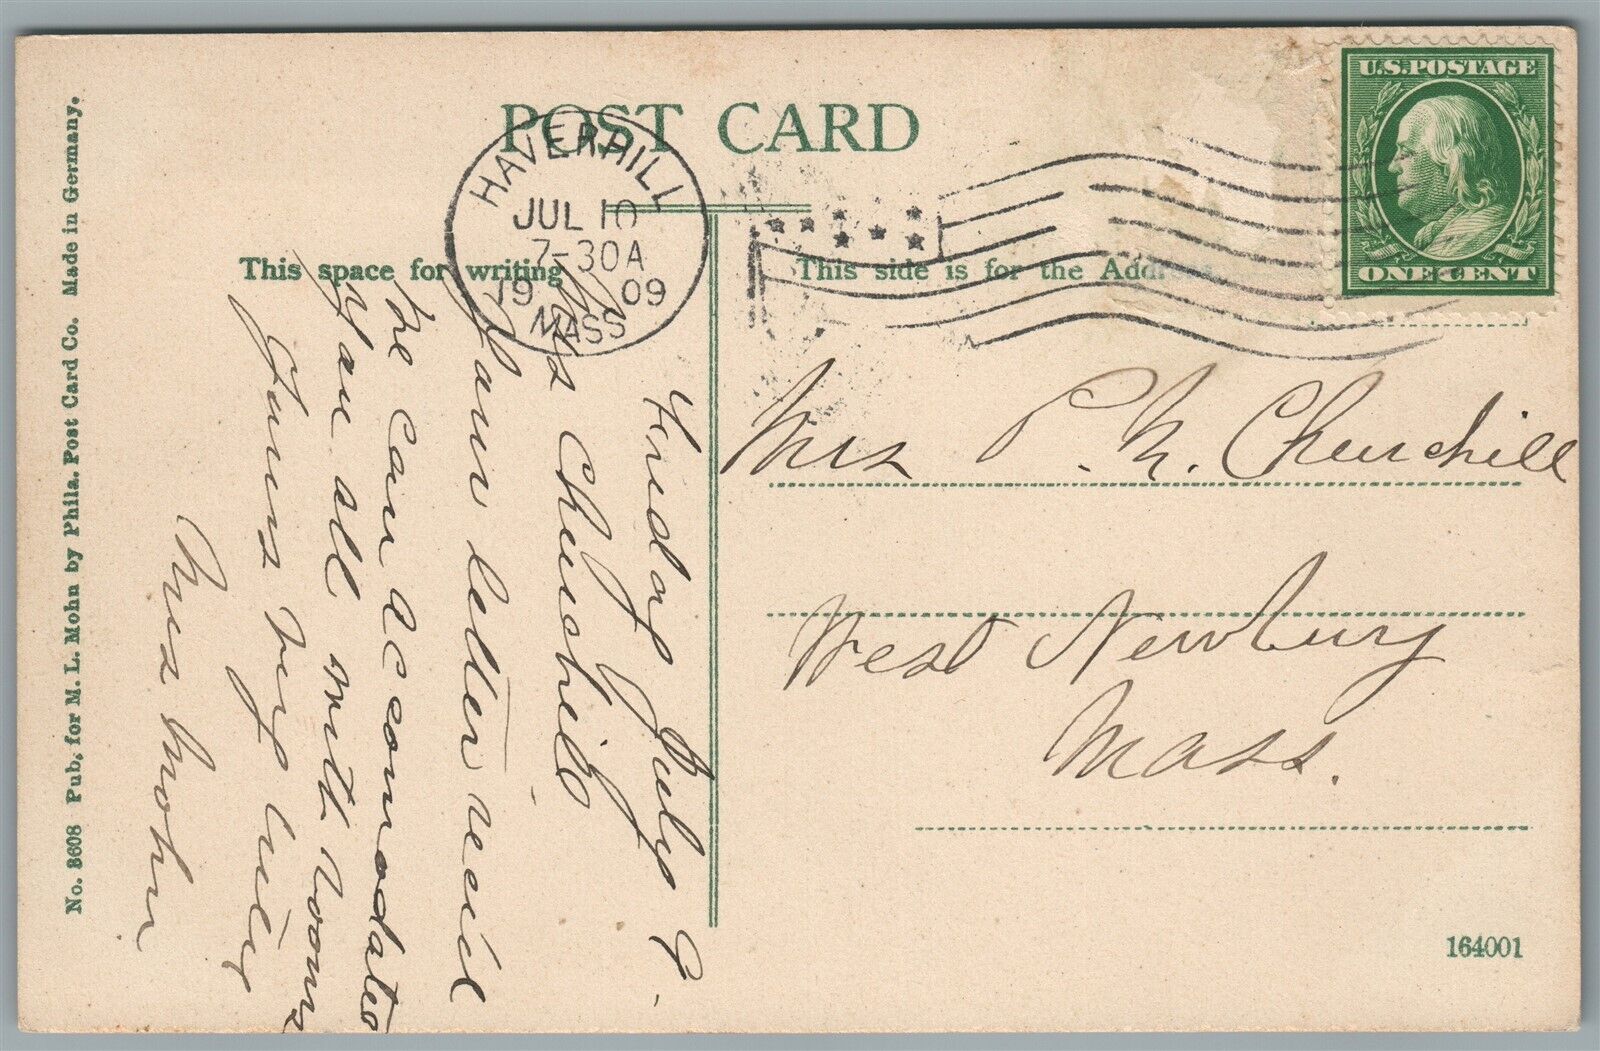 POST CARD
This space for writing
This side is for the Add
U.S. POSTAGE
ONE CENT
HAVERHILL
JUL 10
7-30A
1909
MASS
Friday July 9.
Mrs Churchill
Your letter recid
We can accomodate
You all with rooms
Yours very truly
Mrs Mohn
Mrs P. N. Churchill
West Newbury
Mass.
No. 3608 Pub. for M. L. Mohn by Phila. Post Card Co. Made in Germany.
164001